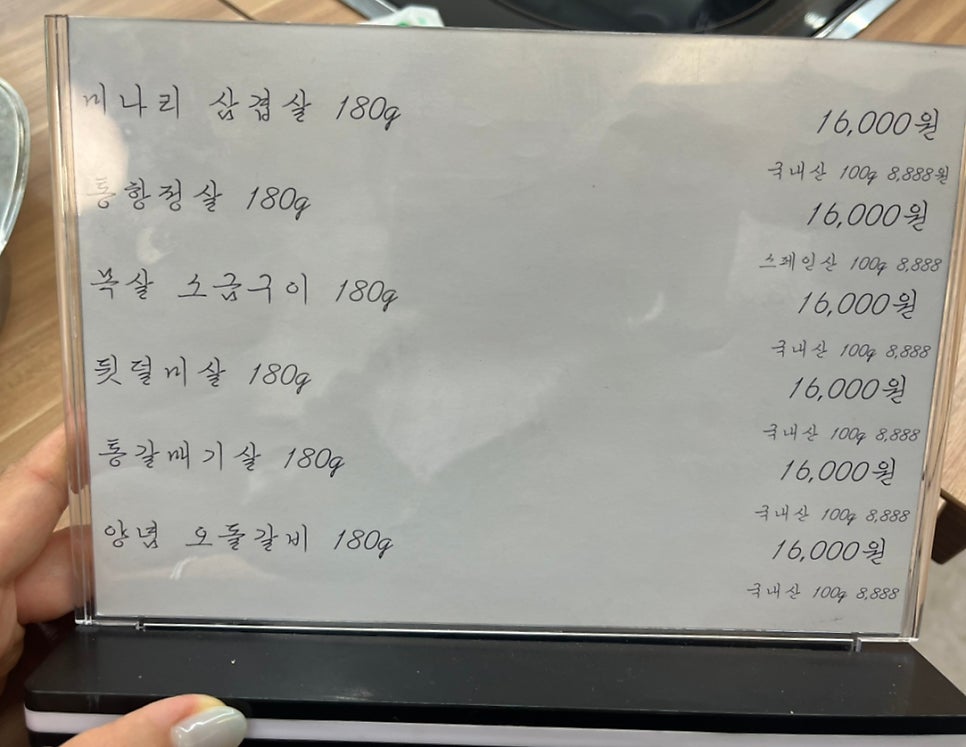 미나리 삼겹살 180g 16,000원
국내산 100g 8,888원
통항정살 180g 16,000원
스페인산 100g 8,888
목살 소금구이 180g 16,000원
국내산 100g 8,888
뒷덜미살 180g 16,000원
국내산 100g 8,888
통갈매기살 180g 16,000원
국내산 100g 8,888
양념 오돌갈비 180g 16,000원
국내산 100g 8,888